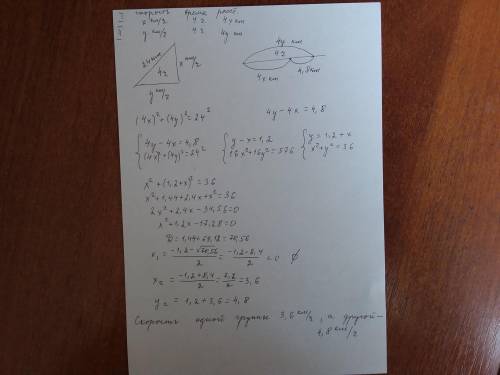 скорость время расст.
x км/ч 4ч 4x км
y км/ч 4ч 4y км
24 км 4ч x км/ч
y км/ч
4y км
4ч
4x км 4,8км
(4x)²+(4y)²=24²
4y-4x=4,8
{4y-4x=4,8
(4x)²+(4y)²=24²
{y-x=1,2
16x²+16y²=576
{y=1,2+x
x²+y²=36
x²+(1,2+x)²=36
x²+1,44+2,4x+x²=36
2x²+2,4x-34,56=0
x²+1,2x-17,28=0
D=1,44+69,12=70,56
x₁=(-1,2-√70,56)/2=(-1,2-8,4)/2<0 ∅
x₂=(-1,2+8,4)/2=7,2/2=3,6
y₂=1,2+3,6=4,8
Скорость одной группы 3,6 км/ч, а другой-
4,8 км/ч